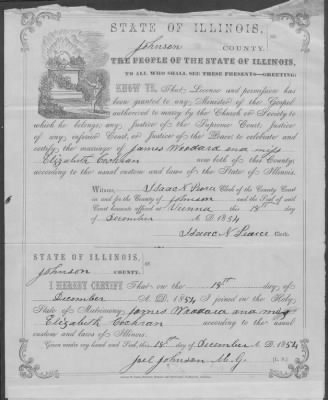 STATE OF ILLINOIS,
Johnson
COUNTY.
THE PEOPLE OF THE STATE OF ILLINOIS,
TO ALL WHO SHALL SEE THESE PRESENTS—GREETING:
KNOW YE, That License and permission has
been granted to any Minister of the Gospel
authorized to marry by the Church or Society to
which he belongs; any Justice of the Supreme Court; Justice
of any inferior Court, or Justice of the Peace, to celebrate and
certify the marriage of James Woodard and miss
Elizabeth Cochran now both of this County,
according to the usual custom and laws of the State of Illinois.
Witness, Isaac N Pearce Clerk of the County Court
in and for the County of Johnson and the Seal of said
Court hereunto affixed at Vienna this 18th day
of December A. D. 1854
Isaac N Pearce Clerk.
STATE OF ILLINOIS,
Johnson
COUNTY.
I HEREBY CERTIFY That on the 18th day of
December A. D. 1854 I joined in the Holy
State of Matrimony James Woodard and miss
Elizabeth Cochran according to the usual
custom and laws of Illinois.
Given under my hand and Seal, this 18th day of December A. D. 1854
Joel Johnson M. G. [L. S.]